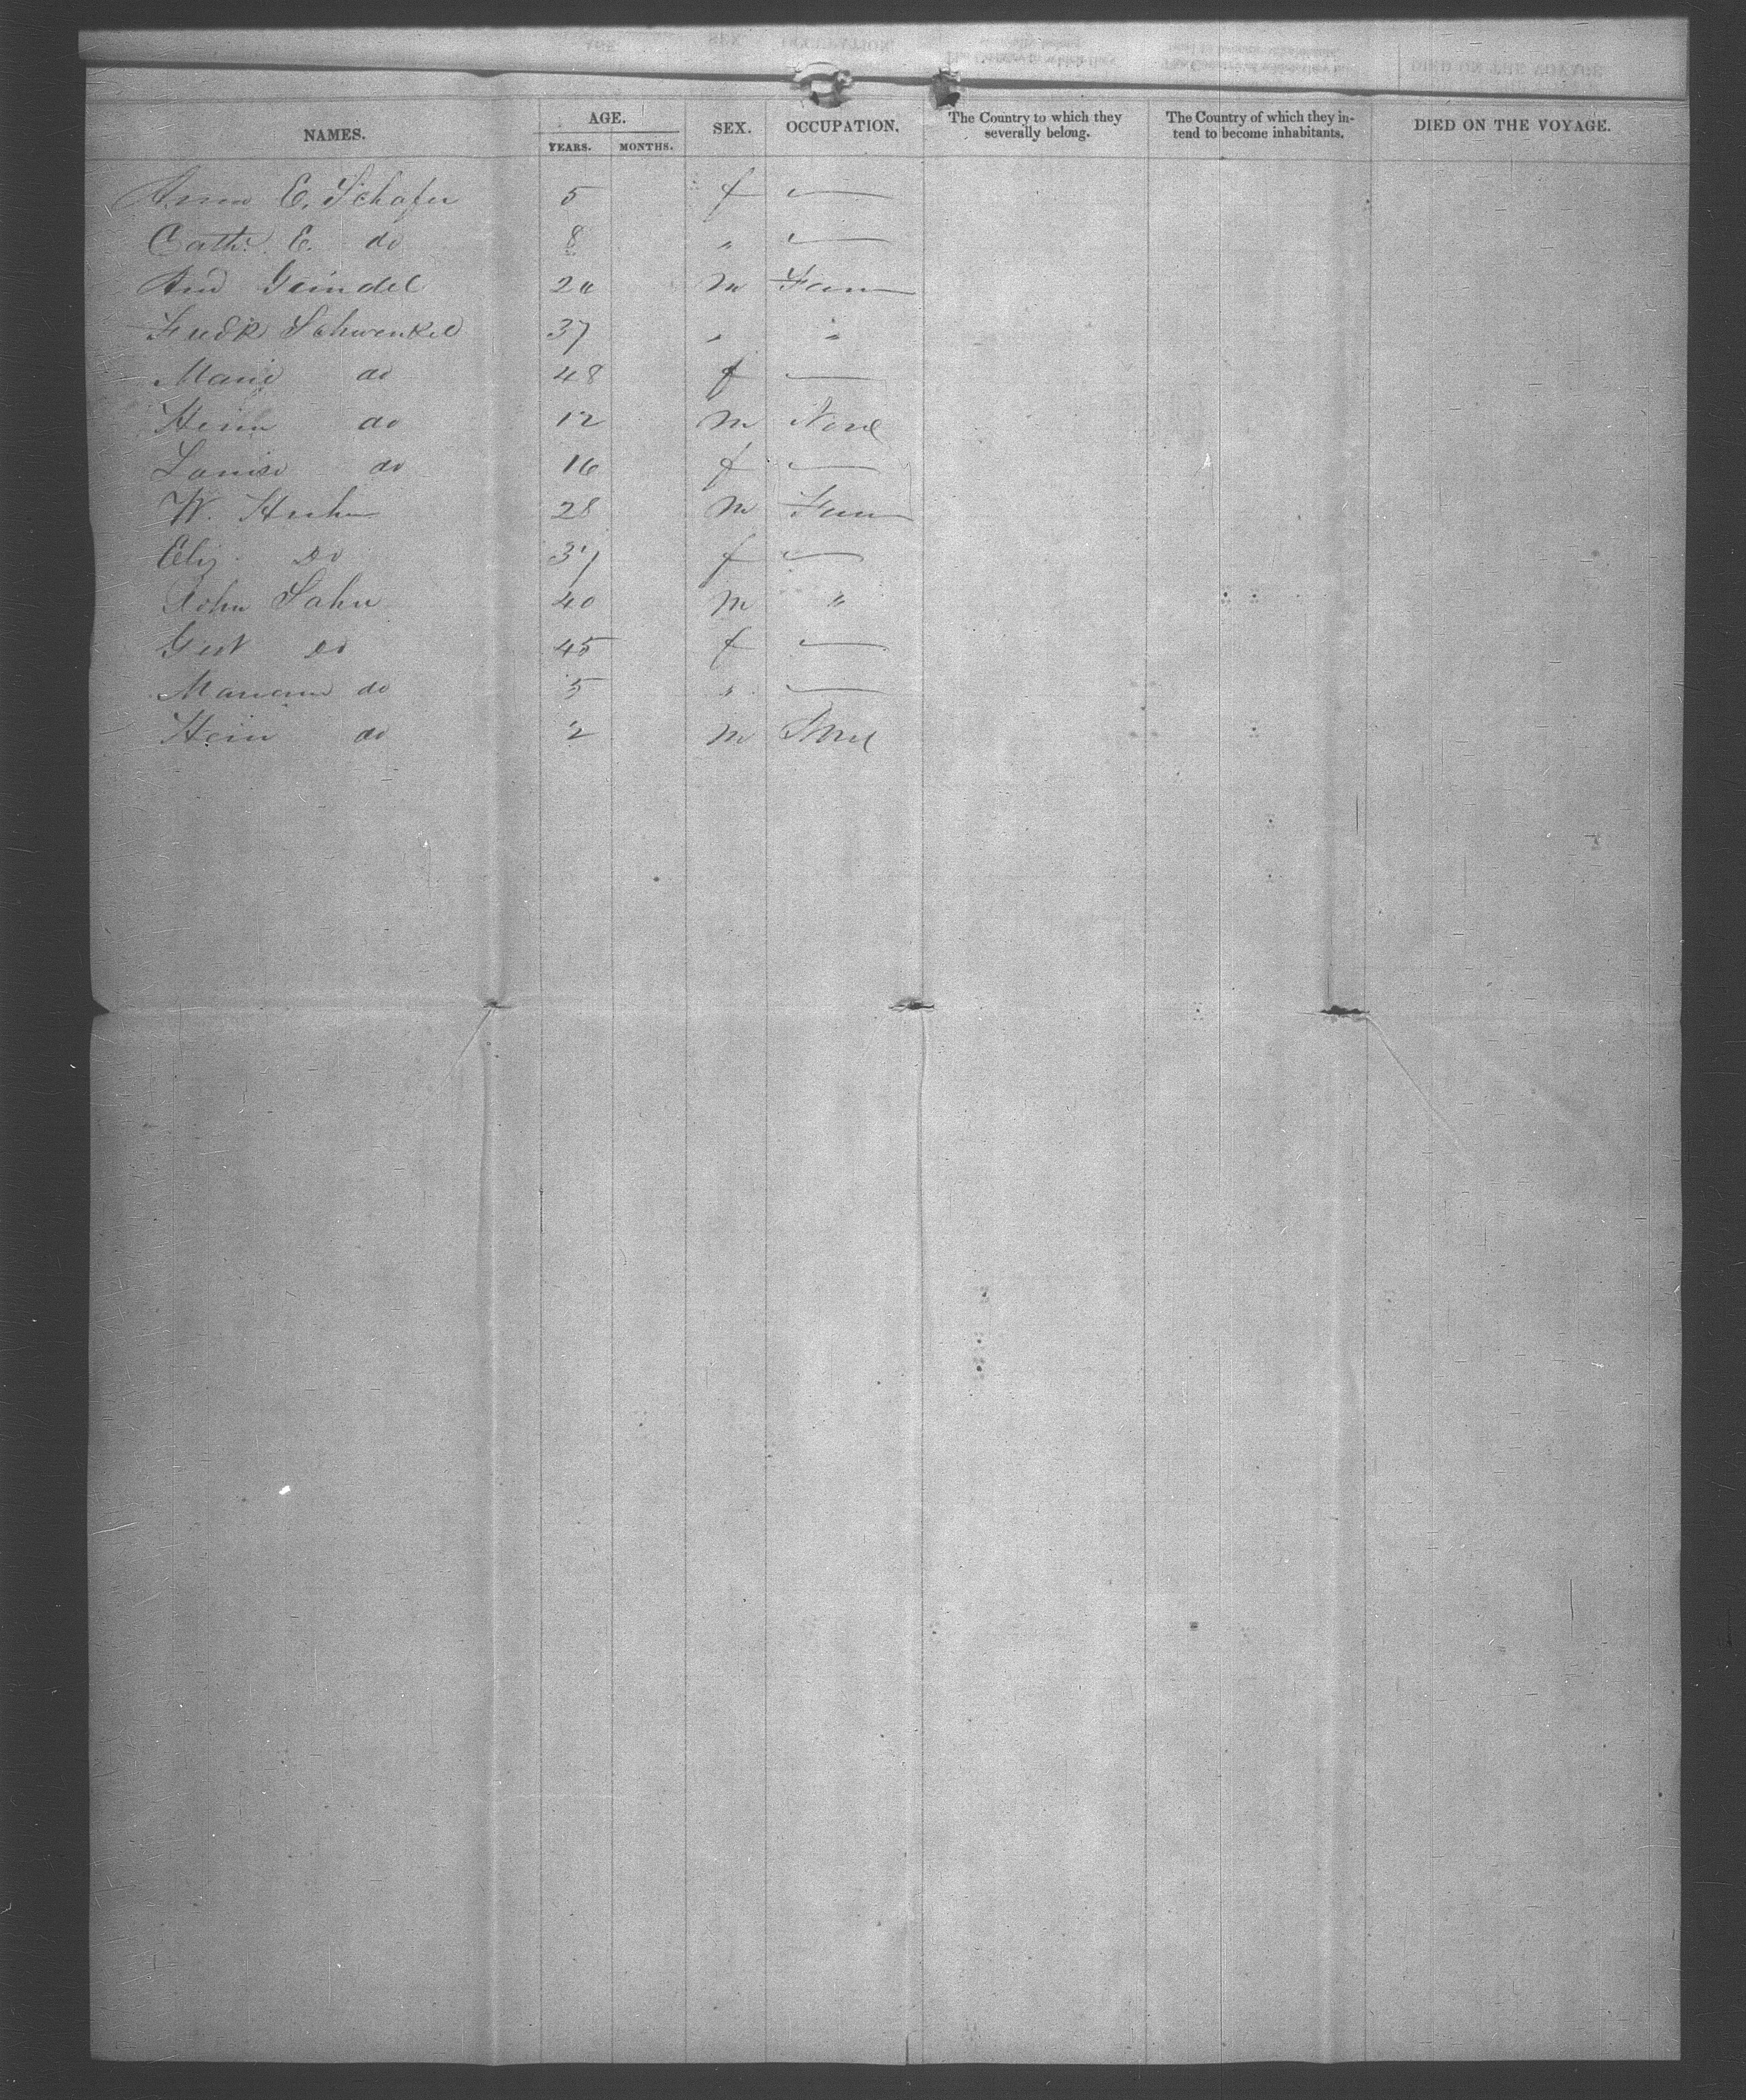 NAMES. AGE. YEARS. MONTHS. SEX. OCCUPATION. The Country to which they severally belong. The Country of which they intend to become inhabitants. DIED ON THE VOYAGE.
Anna E. Schafer 5 f —
Cath. E. do 8 " —
And Grindel 20 m Farm
Fredk Schwenkel 37 " "
Marie do 48 f —
Heinr do 12 m None
Louise do 16 f —
W. 28 m Farm
Eliz. Do 37 f —
John Sahn 40 m "
Gert Do 45 f —
Mariann do 5 " —
Hein do 2 m None